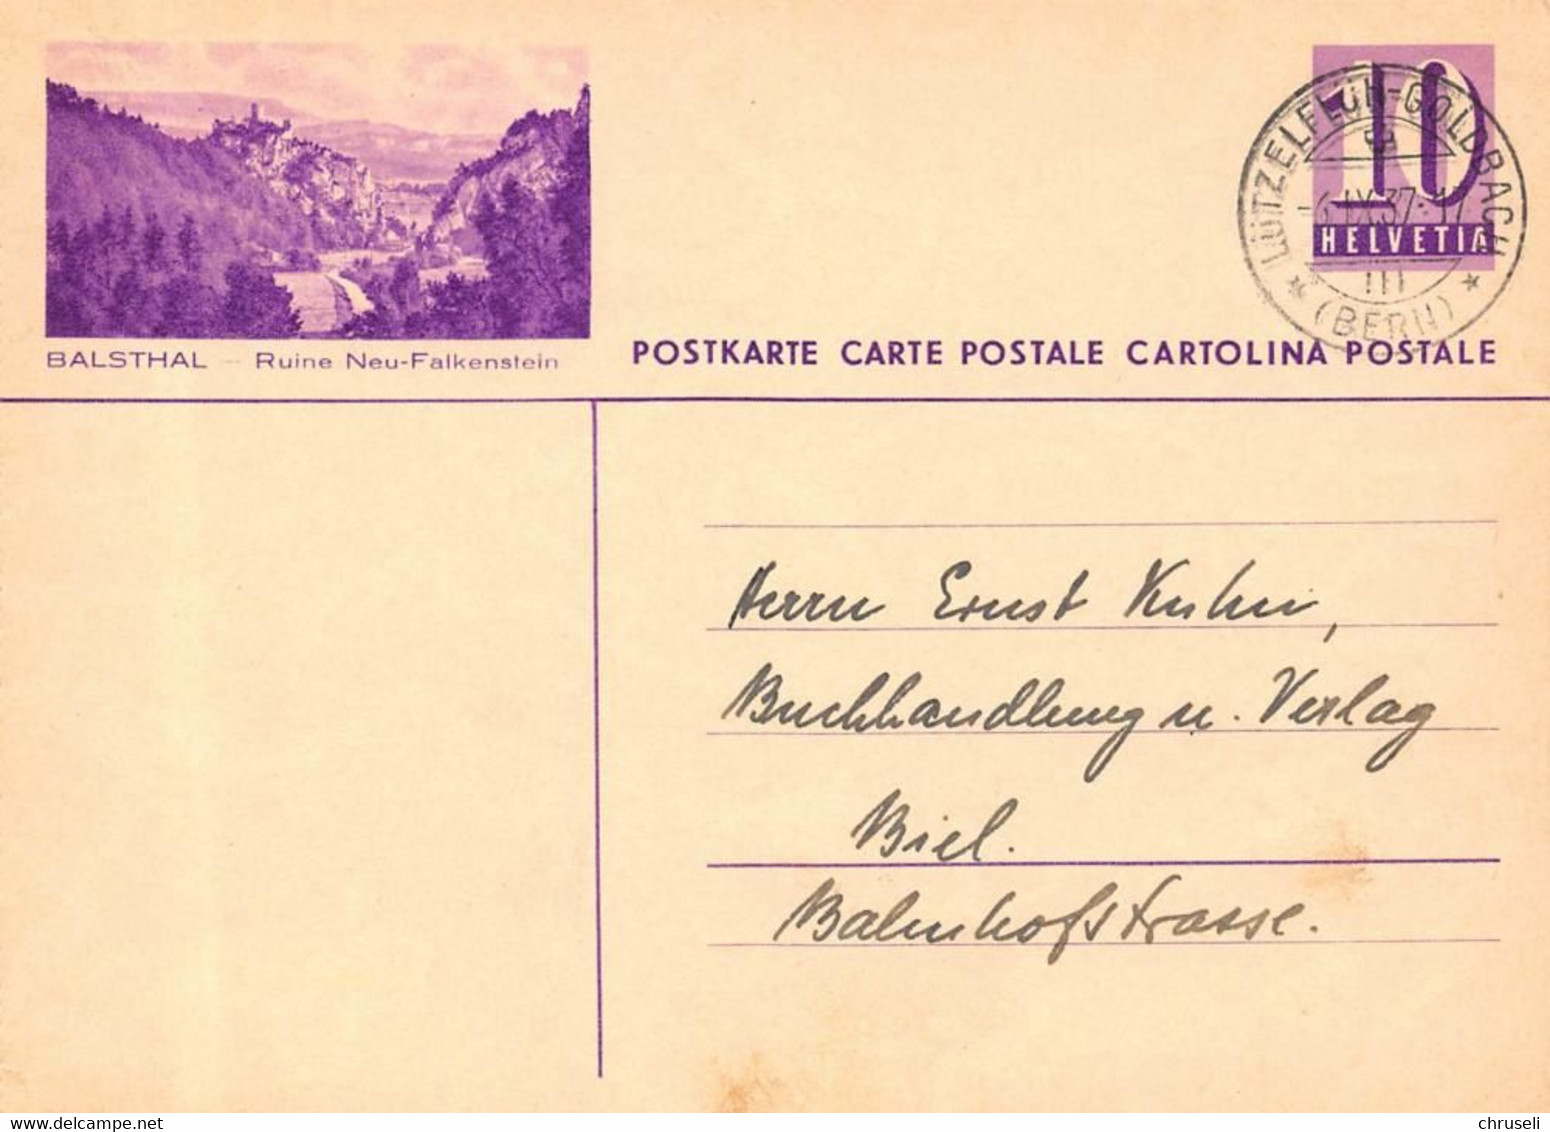 10
HELVETIA
LÜTZELFLÜH-GOLDBACH
-6.IX.37.-17
III
* (BERN) *
BALSTHAL – Ruine Neu-Falkenstein
POSTKARTE CARTE POSTALE CARTOLINA POSTALE
Herrn Ernst Kuhn,
Buchhandlung u. Verlag
Biel.
Bahnhofstrasse.
delcampe.net
chruseli